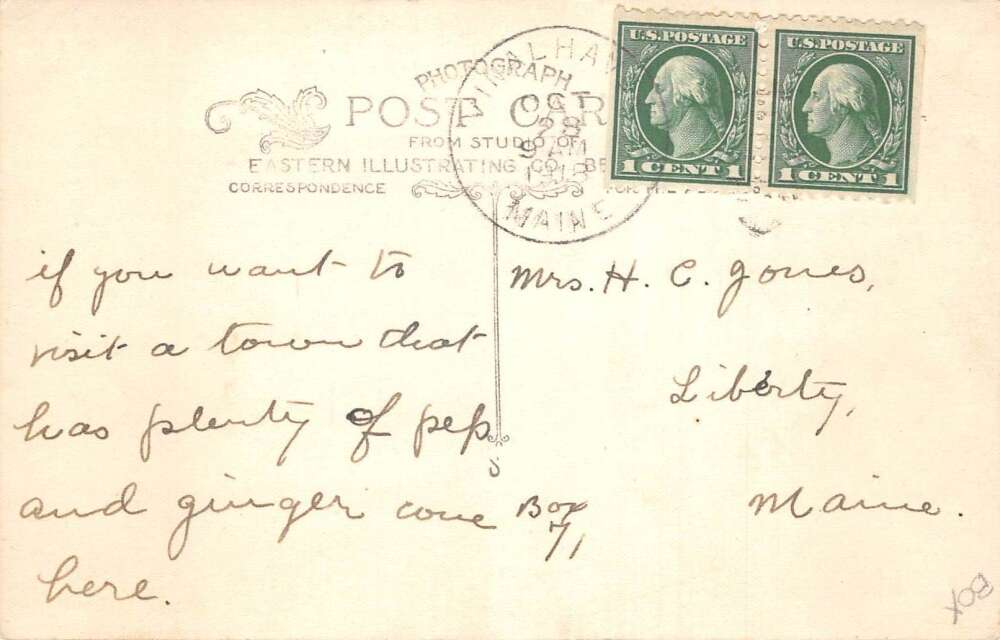 PHOTOGRAPH
POST CAR
FROM STUDIO OF
EASTERN ILLUSTRATING CO. BE
CORRESPONDENCE
FOR THE
VINALHAV
OCT
28
9 AM
MAINE
U.S. POSTAGE
1 CENT 1
U.S. POSTAGE
1 CENT 1
if you want to
visit a town that
has plenty of pep
and ginger come
here.
Mrs. H. C. Jones,
Liberty,
Maine.
Box
71
BOX